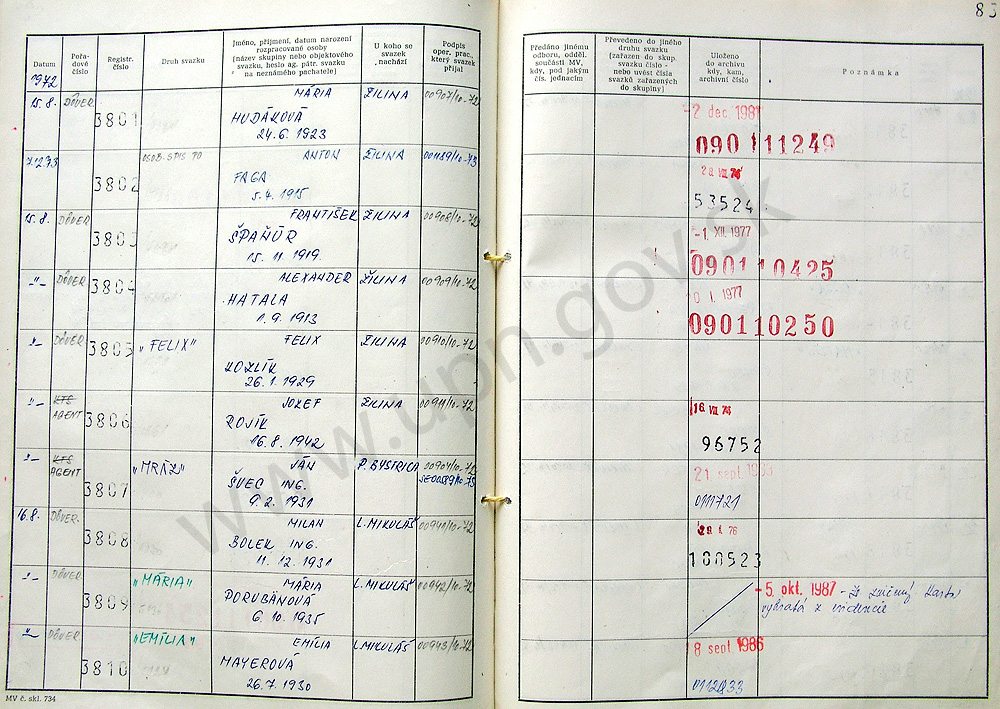 83
Datum
Pořa-
dové
číslo
Registr.
číslo
Druh svazku
Jméno, příjmení, datum narození
rozpracované osoby
(název skupiny nebo objektového
svazku, heslo ag. pátr. svazku
na neznámého pachatele)
U koho se
svazek
nachází
Podpis
oper. prac.,
který svazek
přijal
Předáno jinému
odboru, odděl.
součásti MV,
kdy, pod jakým
čís. jednacím
Převedeno do jiného
druhu svazku
(zařazen do skup.
svazku číslo -
nebo uvést čísla
svazků zařazených
do skupiny)
Uloženo
do archivu
kdy, kam,
archivní číslo
Poznámka
1972
15.8. DÔVER 3801 MÁRIA ŽILINA 00907/10-72 -2 dec. 1981
HUDÁKOVÁ
24.6. 1923
090 111249
3802 OSOB. SPIS TO ANTON ŽILINA 28 VII 76
FAGA
5.4. 1915
53524
15.8. DÔVER 3803 FRANTIŠEK ŽILINA 00908/10-72 -1. XII. 1977
ŠPAŇÚR
15. 11. 1919.
090110425
-"- DÔVER 3804 ALEXANDER ŽILINA 00909/10-72 0 I. 1977
HATALA
1.9. 1913
090110250
-"- DÔVER 3805 "FELIX" FELIX ŽILINA 00910/10-72
KOZLÍK
26.1. 1929
-"- KTS AGENT 3806 JOZEF ŽILINA 00911/10-72 16. VII 76
ROJÍK
16.8. 1942
96752
-"- KTS AGENT 3807 "MRÁZ" JÁN P. BYSTRICA 00904/10-72 21. sept.
ŠVEC ING.
9.2. 1931
011721
16.8. DÔVER. 3808 MILAN L. MIKULÁŠ 00941/10-72 76
BOLEK ING.
11. 12. 1931
100523
-"- DÔVER. 3809 "MÁRIA" MÁRIA L. MIKULÁŠ 00942/10-72 -5. okt. 1987 -
PORUBÄNOVÁ
6. 10. 1935
-"- DÔVER 3810 "EMÍLIA" EMÍLIA L. MIKULÁŠ 00943/10-72 8 sept 1986
MAYEROVÁ
26.7. 1930
MV č. skl. 734
www.upn.gov.sk